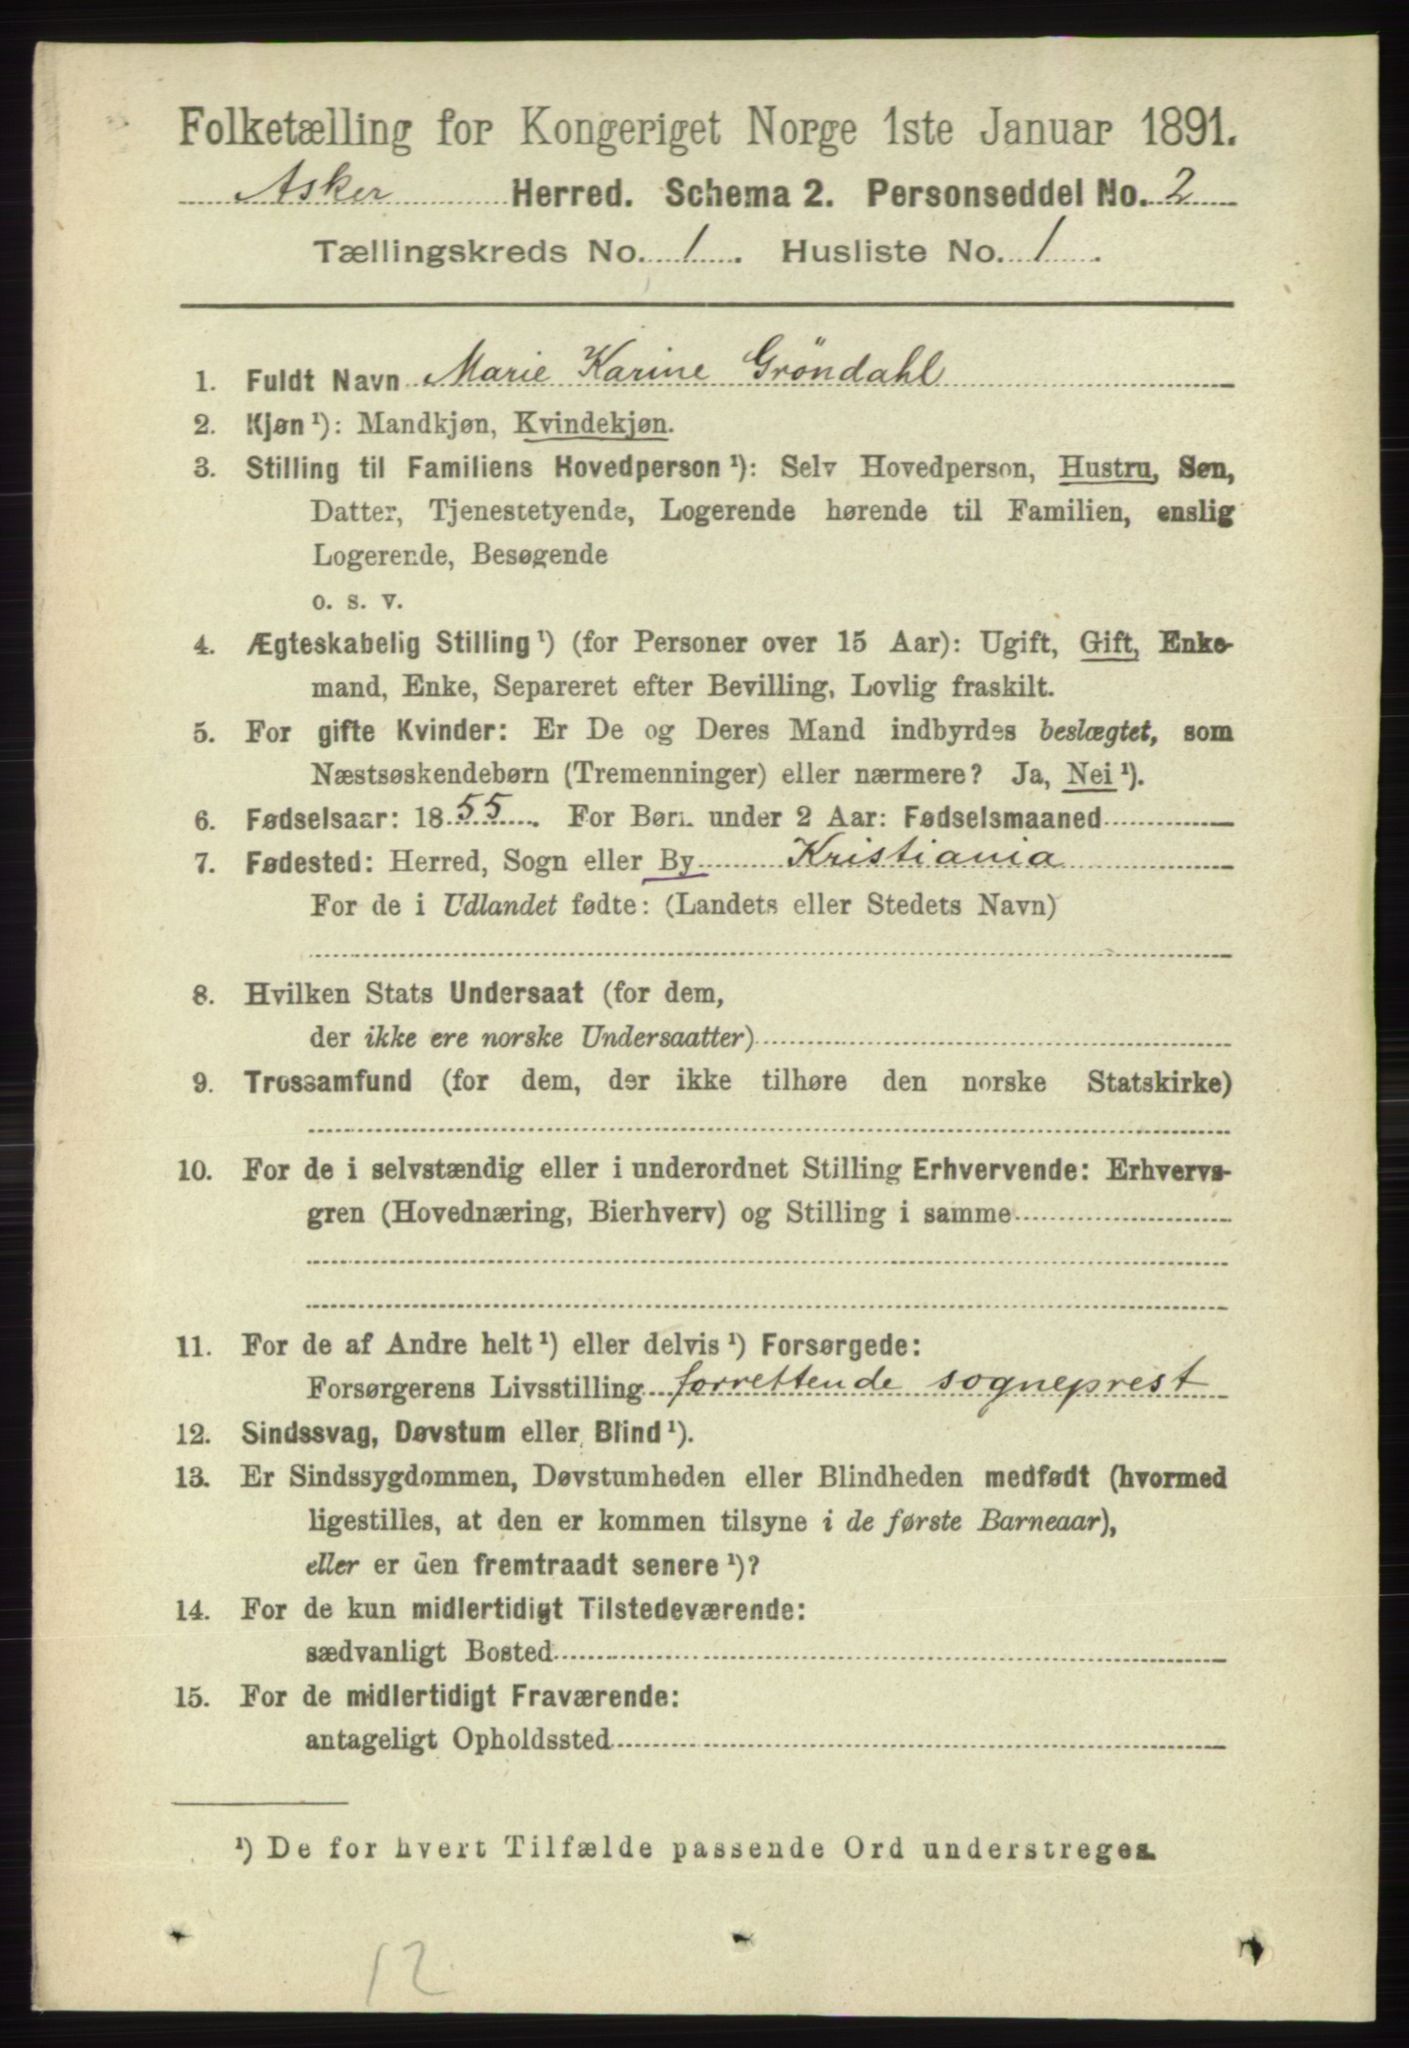 Folketælling for Kongeriget Norge 1ste Januar 1891.
Asker Herred. Schema 2. Personseddel No. 2
Tællingskreds No. 1. Husliste No. 1.
1. Fuldt Navn Marie Karine Gröndahl
2. Kjøn ¹): Mandkjøn, Kvindekjøn.
3. Stilling til Familiens Hovedperson ¹): Selv Hovedperson, Hustru, Søn,
Datter, Tjenestetyende, Logerende hørende til Familien, enslig
Logerende, Besøgende
o. s. v.
4. Ægteskabelig Stilling ¹) (for Personer over 15 Aar): Ugift, Gift, Enke-
mand, Enke, Separeret efter Bevilling, Lovlig fraskilt.
5. For gifte Kvinder: Er De og Deres Mand indbyrdes beslægtet, som
Næstsøskendebørn (Tremenninger) eller nærmere? Ja, Nei ¹).
6. Fødselsaar: 1855. For Børn under 2 Aar: Fødselsmaaned
7. Fødested: Herred, Sogn eller By Kristiania
For de i Udlandet fødte: (Landets eller Stedets Navn)
8. Hvilken Stats Undersaat (for dem,
der ikke ere norske Undersaatter)
9. Trossamfund (for dem, der ikke tilhøre den norske Statskirke)
10. For de i selvstændig eller i underordnet Stilling Erhvervende: Erhvervs-
gren (Hovednæring, Bierhverv) og Stilling i samme
11. For de af Andre helt ¹) eller delvis ¹) Forsørgede:
Forsørgerens Livsstilling forrettende sogneprest
12. Sindssvag, Døvstum eller Blind ¹).
13. Er Sindssygdommen, Døvstumheden eller Blindheden medfødt (hvormed
ligestilles, at den er kommen tilsyne i de første Barneaar),
eller er den fremtraadt senere ¹)?
14. For de kun midlertidigt Tilstedeværende:
sædvanligt Bosted
15. For de midlertidigt Fraværende:
antageligt Opholdssted
¹) De for hvert Tilfælde passende Ord understreges.
12